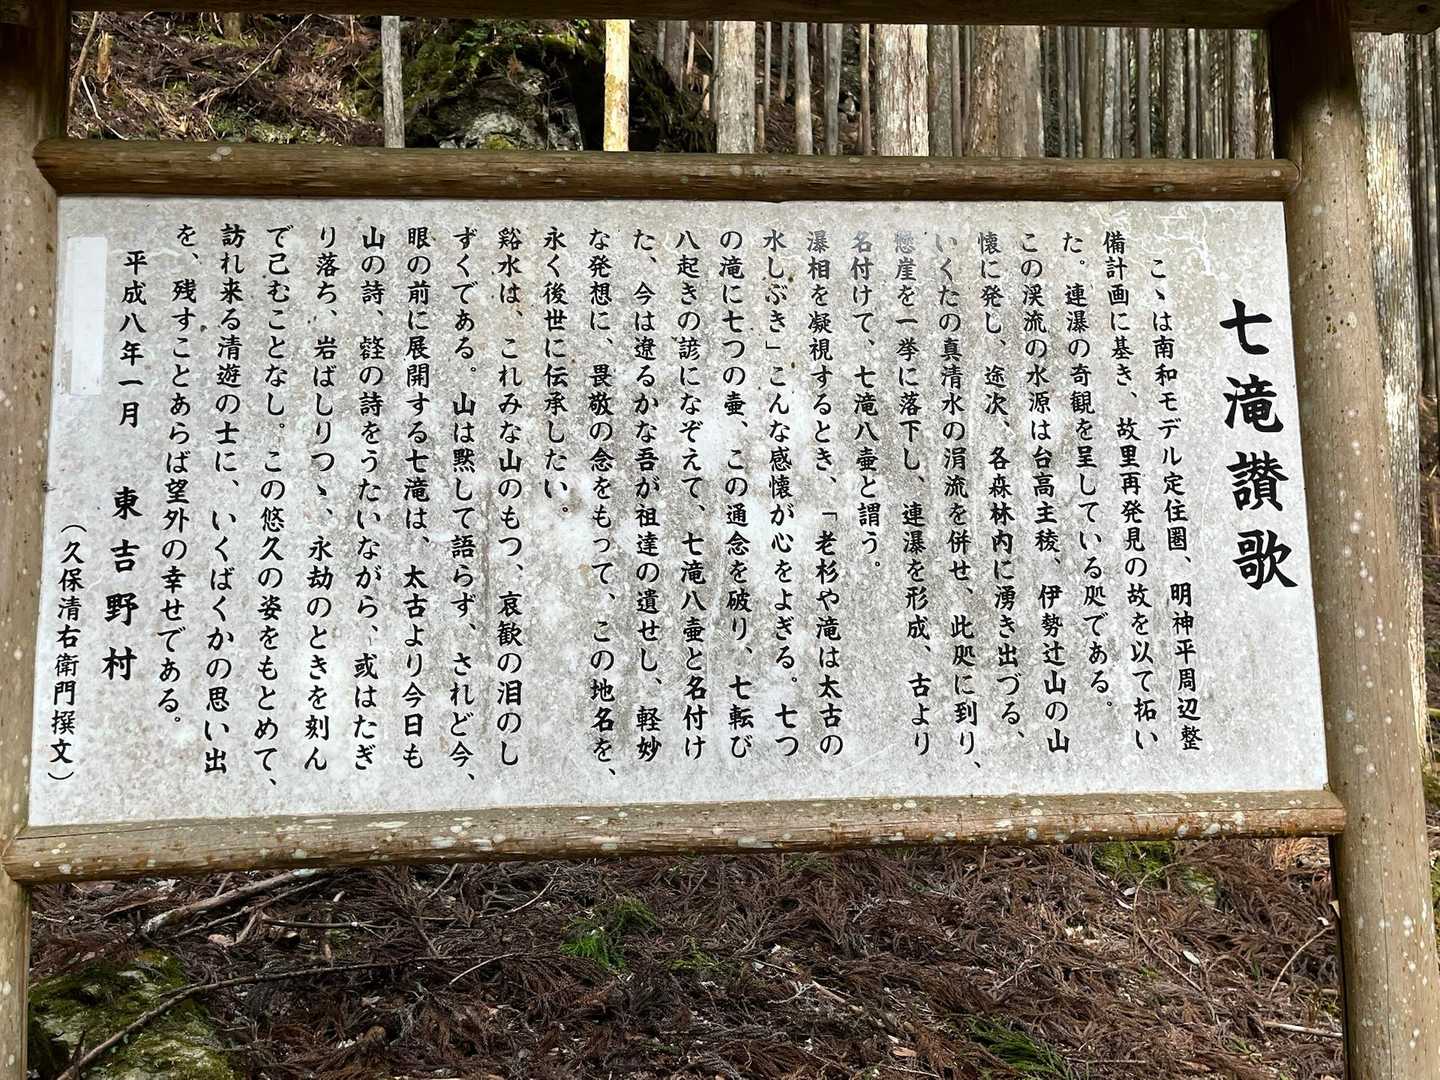 七滝讃歌
こゝは南和モデル定住圏、明神平周辺整
備計画に基き、故里再発見の故を以て拓い
た。連瀑の奇観を呈している処である。
この渓流の水源は台高主稜、伊勢辻山の山
懐に発し、途次、各森林内に湧き出づる、
いくたの真清水の涓流を併せ、此処に到り、
懸崖を一挙に落下し、連瀑を形成、古より
名付けて、七滝八壷と謂う。
瀑相を凝視するとき、「老杉や滝は太古の
水しぶき」こんな感懐が心をよぎる。七つ
の滝に七つの壷、この通念を破り、七転び
八起きの諺になぞえて、七滝八壷と名付け
た、今は遼るかな吾が祖達の遺せし、軽妙
な発想に、畏敬の念をもって、この地名を、
永く後世に伝承したい。
谿水は、これみな山のもつ、哀歓の泪のし
ずくである。山は黙して語らず、されど今、
眼の前に展開する七滝は、太古より今日も
山の詩、谺の詩をうたいながら、或はたぎ
り落ち、岩ばしりつゝ、永劫のときを刻ん
で已むことなし。この悠久の姿をもとめて、
訪れ来る清遊の士に、いくばくかの思い出
を、残すことあらば望外の幸せである。
平成八年一月 東吉野村
（久保清右衛門撰文）